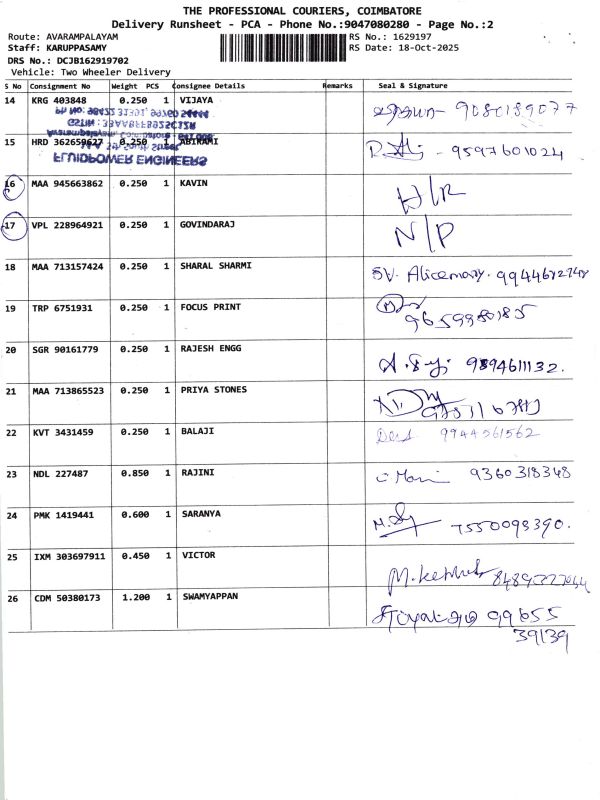 THE PROFESSIONAL COURIERS, COIMBATORE
Delivery Runsheet - PCA - Phone No.:9047080280 - Page No.:2
Route: AVARAMPALAYAM RS No.: 1629197
Staff: KARUPPASAMY RS Date: 18-Oct-2025
DRS No.: DCJB162919702
Vehicle: Two Wheeler Delivery
S No Consignment No Weight PCS Consignee Details Remarks Seal & Signature
14 KRG 403848 0.250 1 VIJAYA 9080189077
GSTIN:
15 HRD 362659627 0.250 1 ABIRAMI 9597601024
FLUIDPOWER ENGINEERS
16 MAA 945663862 0.250 1 KAVIN H/R
17 VPL 228964921 0.250 1 GOVINDARAJ N/P
18 MAA 713157424 0.250 1 SHARAL SHARMI SV. Alicemary.
19 TRP 6751931 0.250 1 FOCUS PRINT
20 SGR 90161779 0.250 1 RAJESH ENGG 9894611132.
21 MAA 713865523 0.250 1 PRIYA STONES
22 KVT 3431459 0.250 1 BALAJI 9944561562
23 NDL 227487 0.850 1 RAJINI 9360318348
24 PMK 1419441 0.600 1 SARANYA 7550093390.
25 IXM 303697911 0.450 1 VICTOR
26 CDM 50380173 1.200 1 SWAMYAPPAN 99655
39139